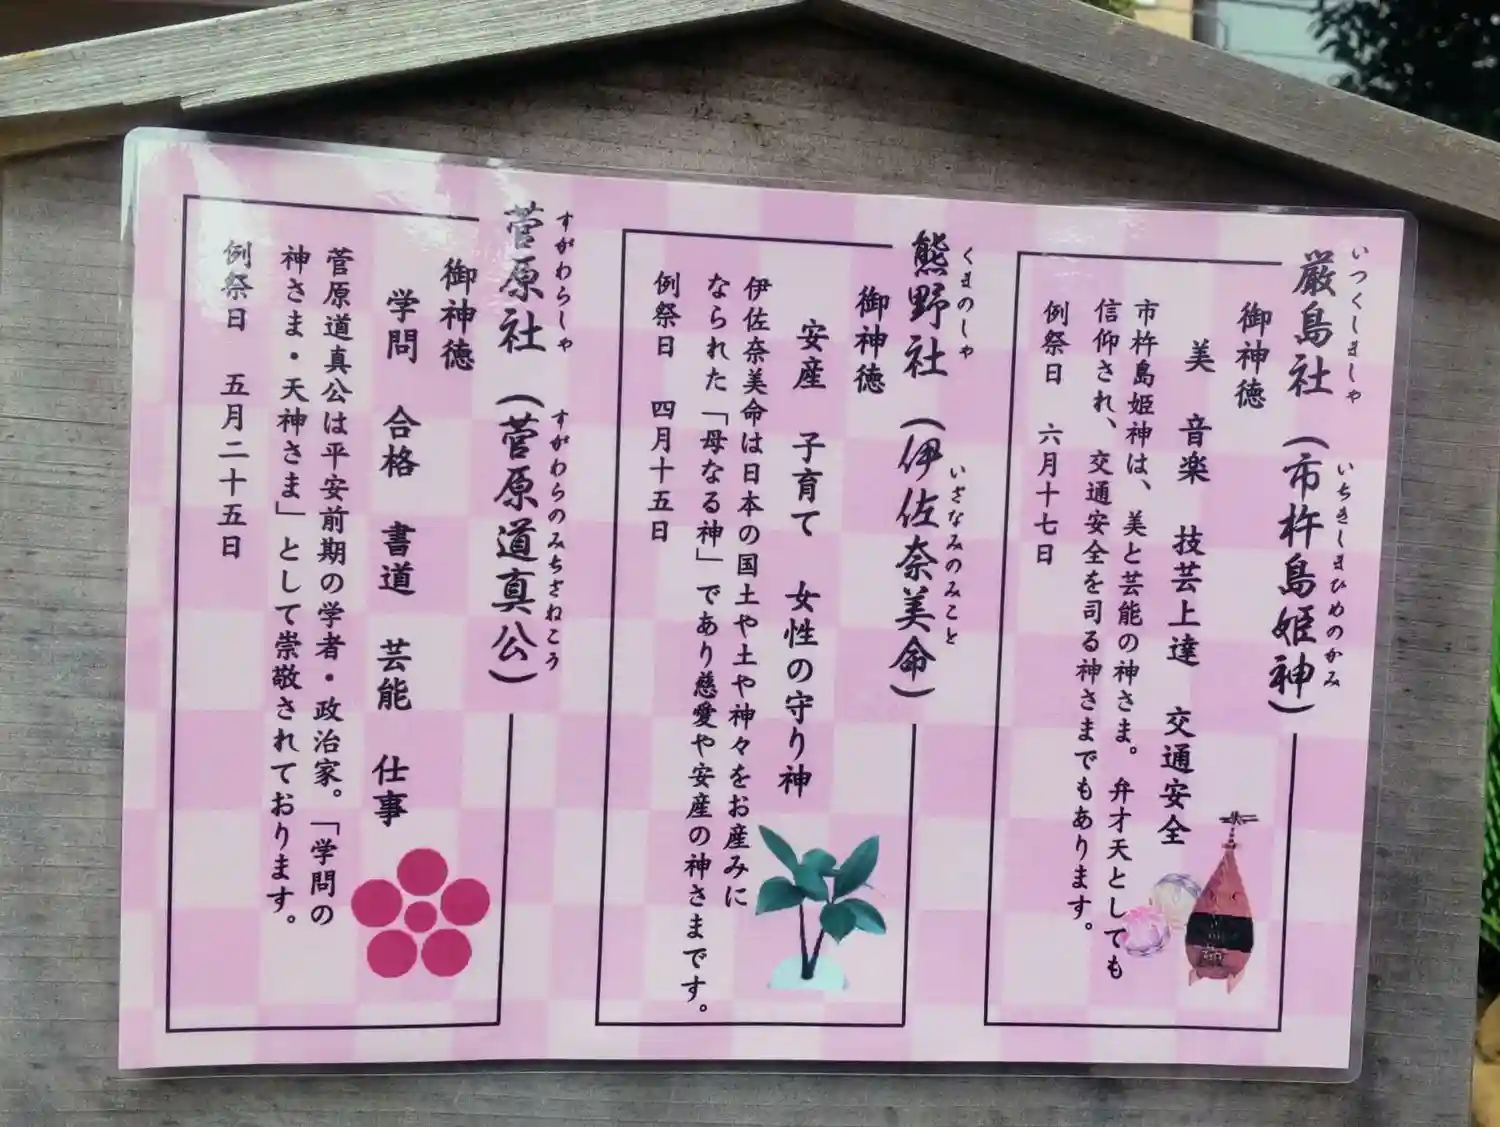 いつくしましゃ
厳島社
いちきしまひめのかみ
(市杵島姫神)
御神徳
美 音楽 技芸上達 交通安全
市杵島姫神は、美と芸能の神さま。弁才天としても
信仰され、交通安全を司る神さまでもあります。
例祭日 六月十七日
くまのしゃ
熊野社
いざなみのみこと
(伊佐奈美命)
御神徳
安産 子育て 女性の守り神
伊佐奈美命は日本の国土や土や神々をお産みに
なられた「母なる神」であり慈愛や安産の神さまです。
例祭日 四月十五日
すがわらしゃ
菅原社
すがわらのみちざねこう
(菅原道真公)
御神徳
学問 合格 書道 芸能 仕事
菅原道真公は平安前期の学者・政治家。「学問の
神さま・天神さま」として崇敬されております。
例祭日 五月二十五日